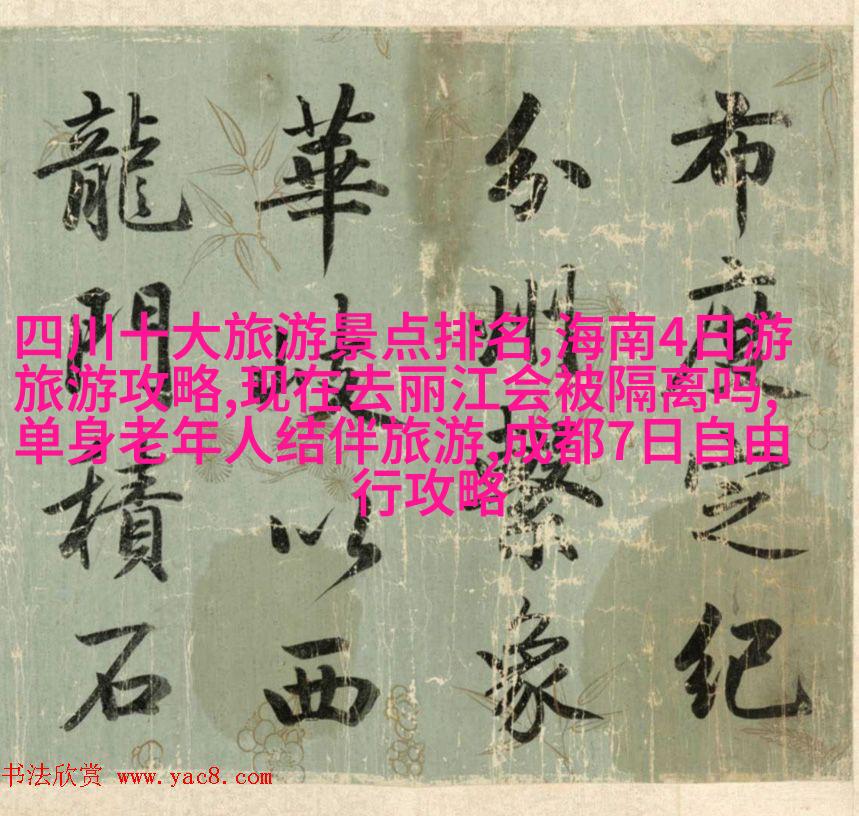 布度定紀
分州繫象
華陝以西
龍門積石
四川十大旅游景点排名,海南4日游
旅游攻略,现在去丽江会被隔离吗,
单身老年人结伴旅游,成都7日自由
行攻略
书法欣赏 www.yac8.com